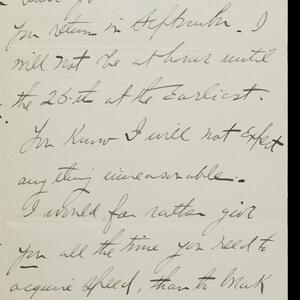 you return in September. I
will not be at home until
the 25th at the Earliest.
You Know I will not Expect
anything unreasonable.
I would far rather give
you all the time you need to
acquire speed, than to break